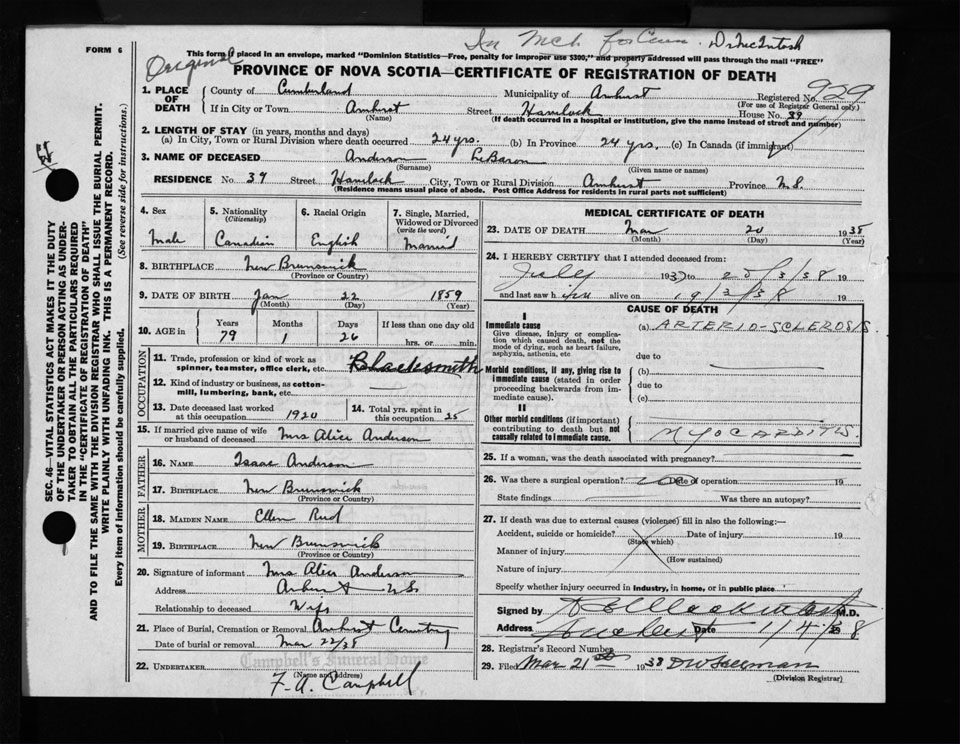 FORM 6
In Mch for Dr McIntosh
Original
This form if placed in an envelope, marked "Dominion Statistics—Free, penalty for improper use $300," and properly addressed will pass through the mail "FREE"
PROVINCE OF NOVA SCOTIA—CERTIFICATE OF REGISTRATION OF DEATH
1. PLACE OF DEATH County of Cumberland Municipality of Amherst Registered No. 929
(For use of Registrar General only)
If in City or Town Amherst Street Havelock House No. 39
(Name) (If death occurred in a hospital or institution, give the name instead of street and number)
2. LENGTH OF STAY (in years, months and days)
(a) In City, Town or Rural Division where death occurred 24 yrs. (b) In Province 24 yrs. (c) In Canada (if immigrant)
3. NAME OF DECEASED Anderson LeBaron
(Surname) (Given name or names)
RESIDENCE No. 39 Street Havelock City, Town or Rural Division Amherst Province N.S.
(Residence means usual place of abode. Post Office Address for residents in rural parts not sufficient)
SEC. 46—VITAL STATISTICS ACT MAKES IT THE DUTY
OF THE UNDERTAKER OR PERSON ACTING AS UNDER-
TAKER TO OBTAIN ALL THE PARTICULARS REQUIRED
IN THE "CERTIFICATE OF REGISTRATION OF DEATH"
AND TO FILE THE SAME WITH THE DIVISION REGISTRAR WHO SHALL ISSUE THE BURIAL PERMIT.
WRITE PLAINLY WITH UNFADING INK. THIS IS A PERMANENT RECORD.
Every item of information should be carefully supplied. (See reverse side for instructions.)
4. Sex Male
5. Nationality (Citizenship) Canadian
6. Racial Origin English
7. Single, Married, Widowed or Divorced (write the word) Married
8. BIRTHPLACE New Brunswick
(Province or Country)
9. DATE OF BIRTH Jan 22 1859
(Month) (Day) (Year)
10. AGE in Years Months Days If less than one day old
79 1 26 hrs. or min.
OCCUPATION
11. Trade, profession or kind of work as spinner, teamster, office clerk, etc. Blacksmith
12. Kind of industry or business, as cotton-mill, lumbering, bank, etc.
13. Date deceased last worked at this occupation 1920
14. Total yrs. spent in this occupation 25
15. If married give name of wife or husband of deceased Mrs Alice Anderson
FATHER
16. NAME Isaac Anderson
17. BIRTHPLACE New Brunswick
(Province or Country)
MOTHER
18. MAIDEN NAME Ellen
19. BIRTHPLACE New Brunswick
(Province or Country)
20. Signature of informant Mrs Alice Anderson
Address Amherst N.S.
Relationship to deceased Wife
21. Place of Burial, Cremation or Removal Amherst Cemetery
Date of burial or removal Mar 22/38
Campbell's Funeral Home
22. UNDERTAKER
(Name and address)
F. A. Campbell
MEDICAL CERTIFICATE OF DEATH
23. DATE OF DEATH Mar 20 1938
(Month) (Day) (Year)
24. I HEREBY CERTIFY that I attended deceased from:
July 1937 to 20/3/38 19
and last saw him alive on 19/3/38 19
CAUSE OF DEATH
I
Immediate cause (a) ARTERIO-SCLEROSIS
Give disease, injury or complication which caused death, not the mode of dying, such as heart failure, asphyxia, asthenia, etc
due to
Morbid conditions, if any, giving rise to immediate cause (stated in order proceeding backwards from immediate cause).
(b)
due to
(c)
II
Other morbid conditions (if important) contributing to death but not causally related to immediate cause.
MYOCARDITIS
25. If a woman, was the death associated with pregnancy?
26. Was there a surgical operation? Date of operation 19
State findings Was there an autopsy?
27. If death was due to external causes (violence) fill in also the following:—
Accident, suicide or homicide? Date of injury 19
(State which)
Manner of injury
(How sustained)
Nature of injury
Specify whether injury occurred in industry, in home, or in public place
Signed by M.D.
Address Amherst Date 1/4/38
28. Registrar's Record Number
29. Filed Mar 21st 1938
(Division Registrar)